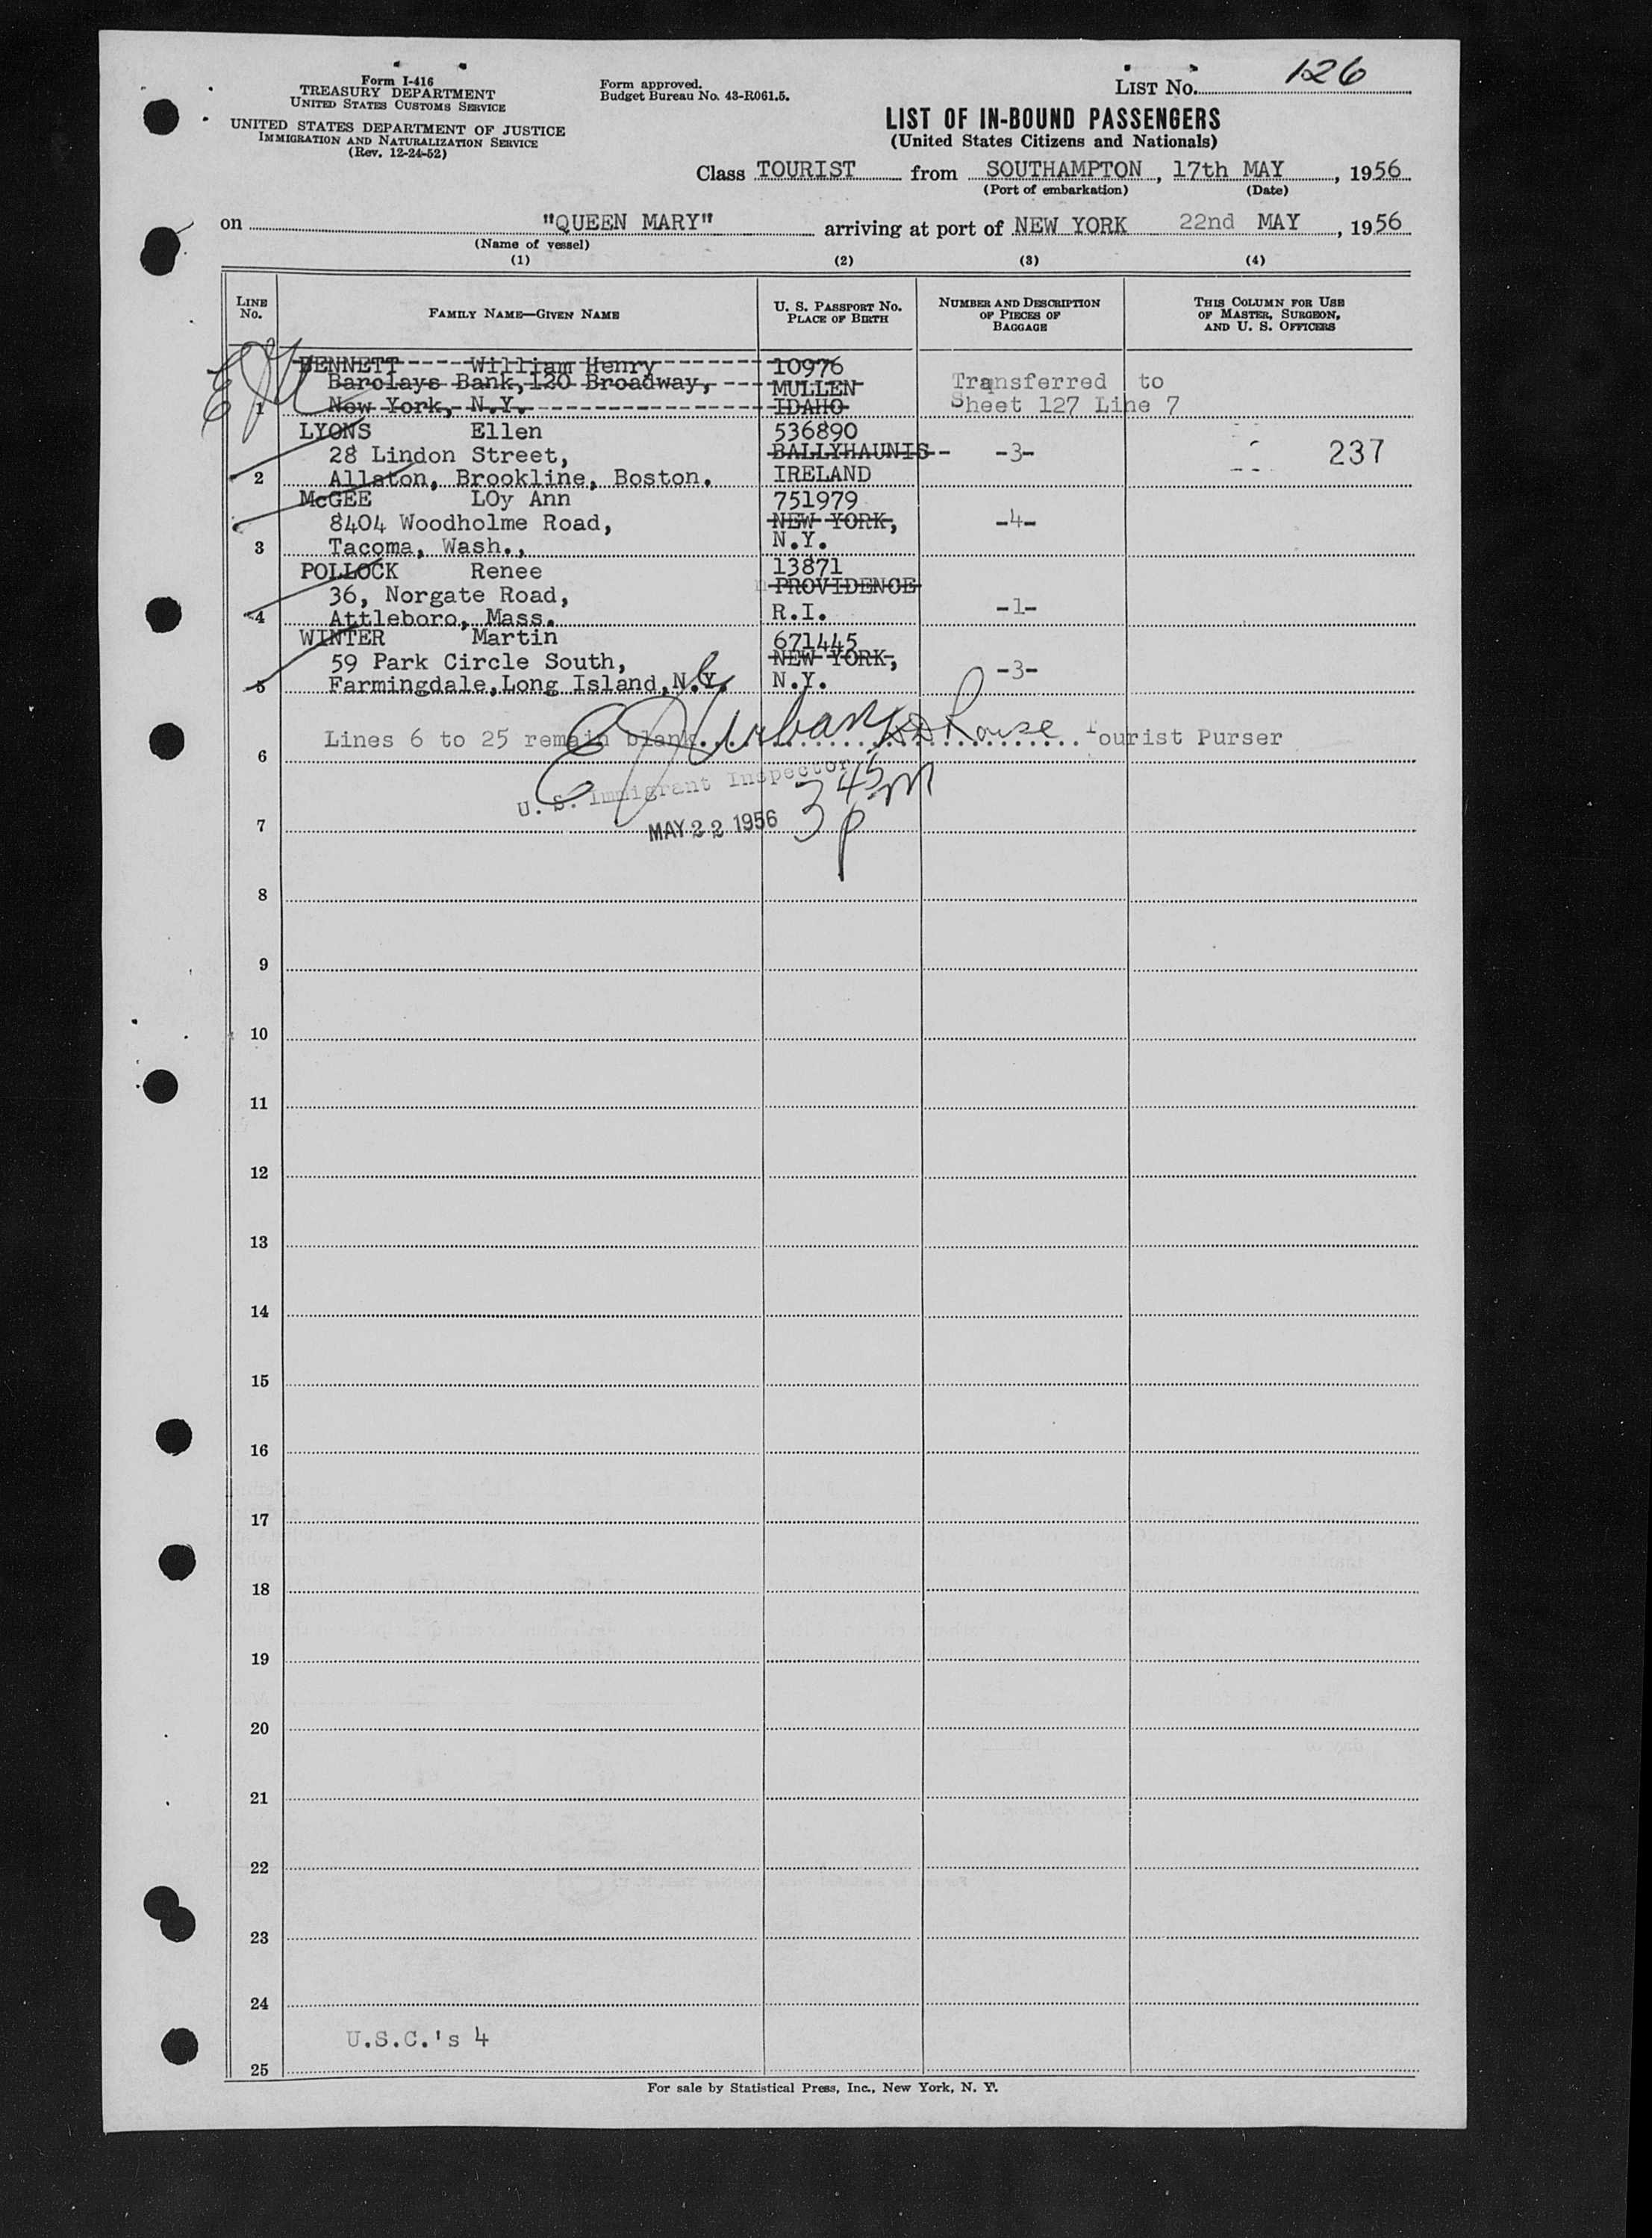 Form I-416
TREASURY DEPARTMENT
UNITED STATES CUSTOMS SERVICE
UNITED STATES DEPARTMENT OF JUSTICE
IMMIGRATION AND NATURALIZATION SERVICE
(Rev. 12-24-52)
Form approved.
Budget Bureau No. 43-R061.5.
LIST No. 126
LIST OF IN-BOUND PASSENGERS
(United States Citizens and Nationals)
Class TOURIST from SOUTHAMPTON, 17th MAY, 1956
(Port of embarkation) (Date)
on "QUEEN MARY" arriving at port of NEW YORK 22nd MAY, 1956
(Name of vessel)
(1) (2) (3) (4)
LINE No.
FAMILY NAME—GIVEN NAME
U. S. PASSPORT NO.
PLACE OF BIRTH
NUMBER AND DESCRIPTION
OF PIECES OF
BAGGAGE
THIS COLUMN FOR USE
OF MASTER, SURGEON,
AND U. S. OFFICERS
BENNETT William Henry 10976
Barclays Bank, 120 Broadway, MULLEN Transferred to
1 New York, N.Y. IDAHO Sheet 127 Line 7
LYONS Ellen 536890
28 Lindon Street, BALLYHAUNIS -3- 237
2 Allston, Brookline, Boston. IRELAND
McGEE LOy Ann 751979
8404 Woodholme Road, NEW YORK, -4-
3 Tacoma, Wash., N.Y.
POLLOCK Renee 13871
36, Norgate Road, PROVIDENCE
4 Attleboro, Mass. R.I. -1-
WINTER Martin 671445
59 Park Circle South, NEW YORK, -3-
5 Farmingdale, Long Island, N.Y. N.Y.
Lines 6 to 25 remain blank Tourist Purser
6
U. S. Immigrant Inspector
MAY 22 1956 3 45 pm
7
8
9
10
11
12
13
14
15
16
17
18
19
20
21
22
23
24
U.S.C.'s 4
25
For sale by Statistical Press, Inc., New York, N. Y.